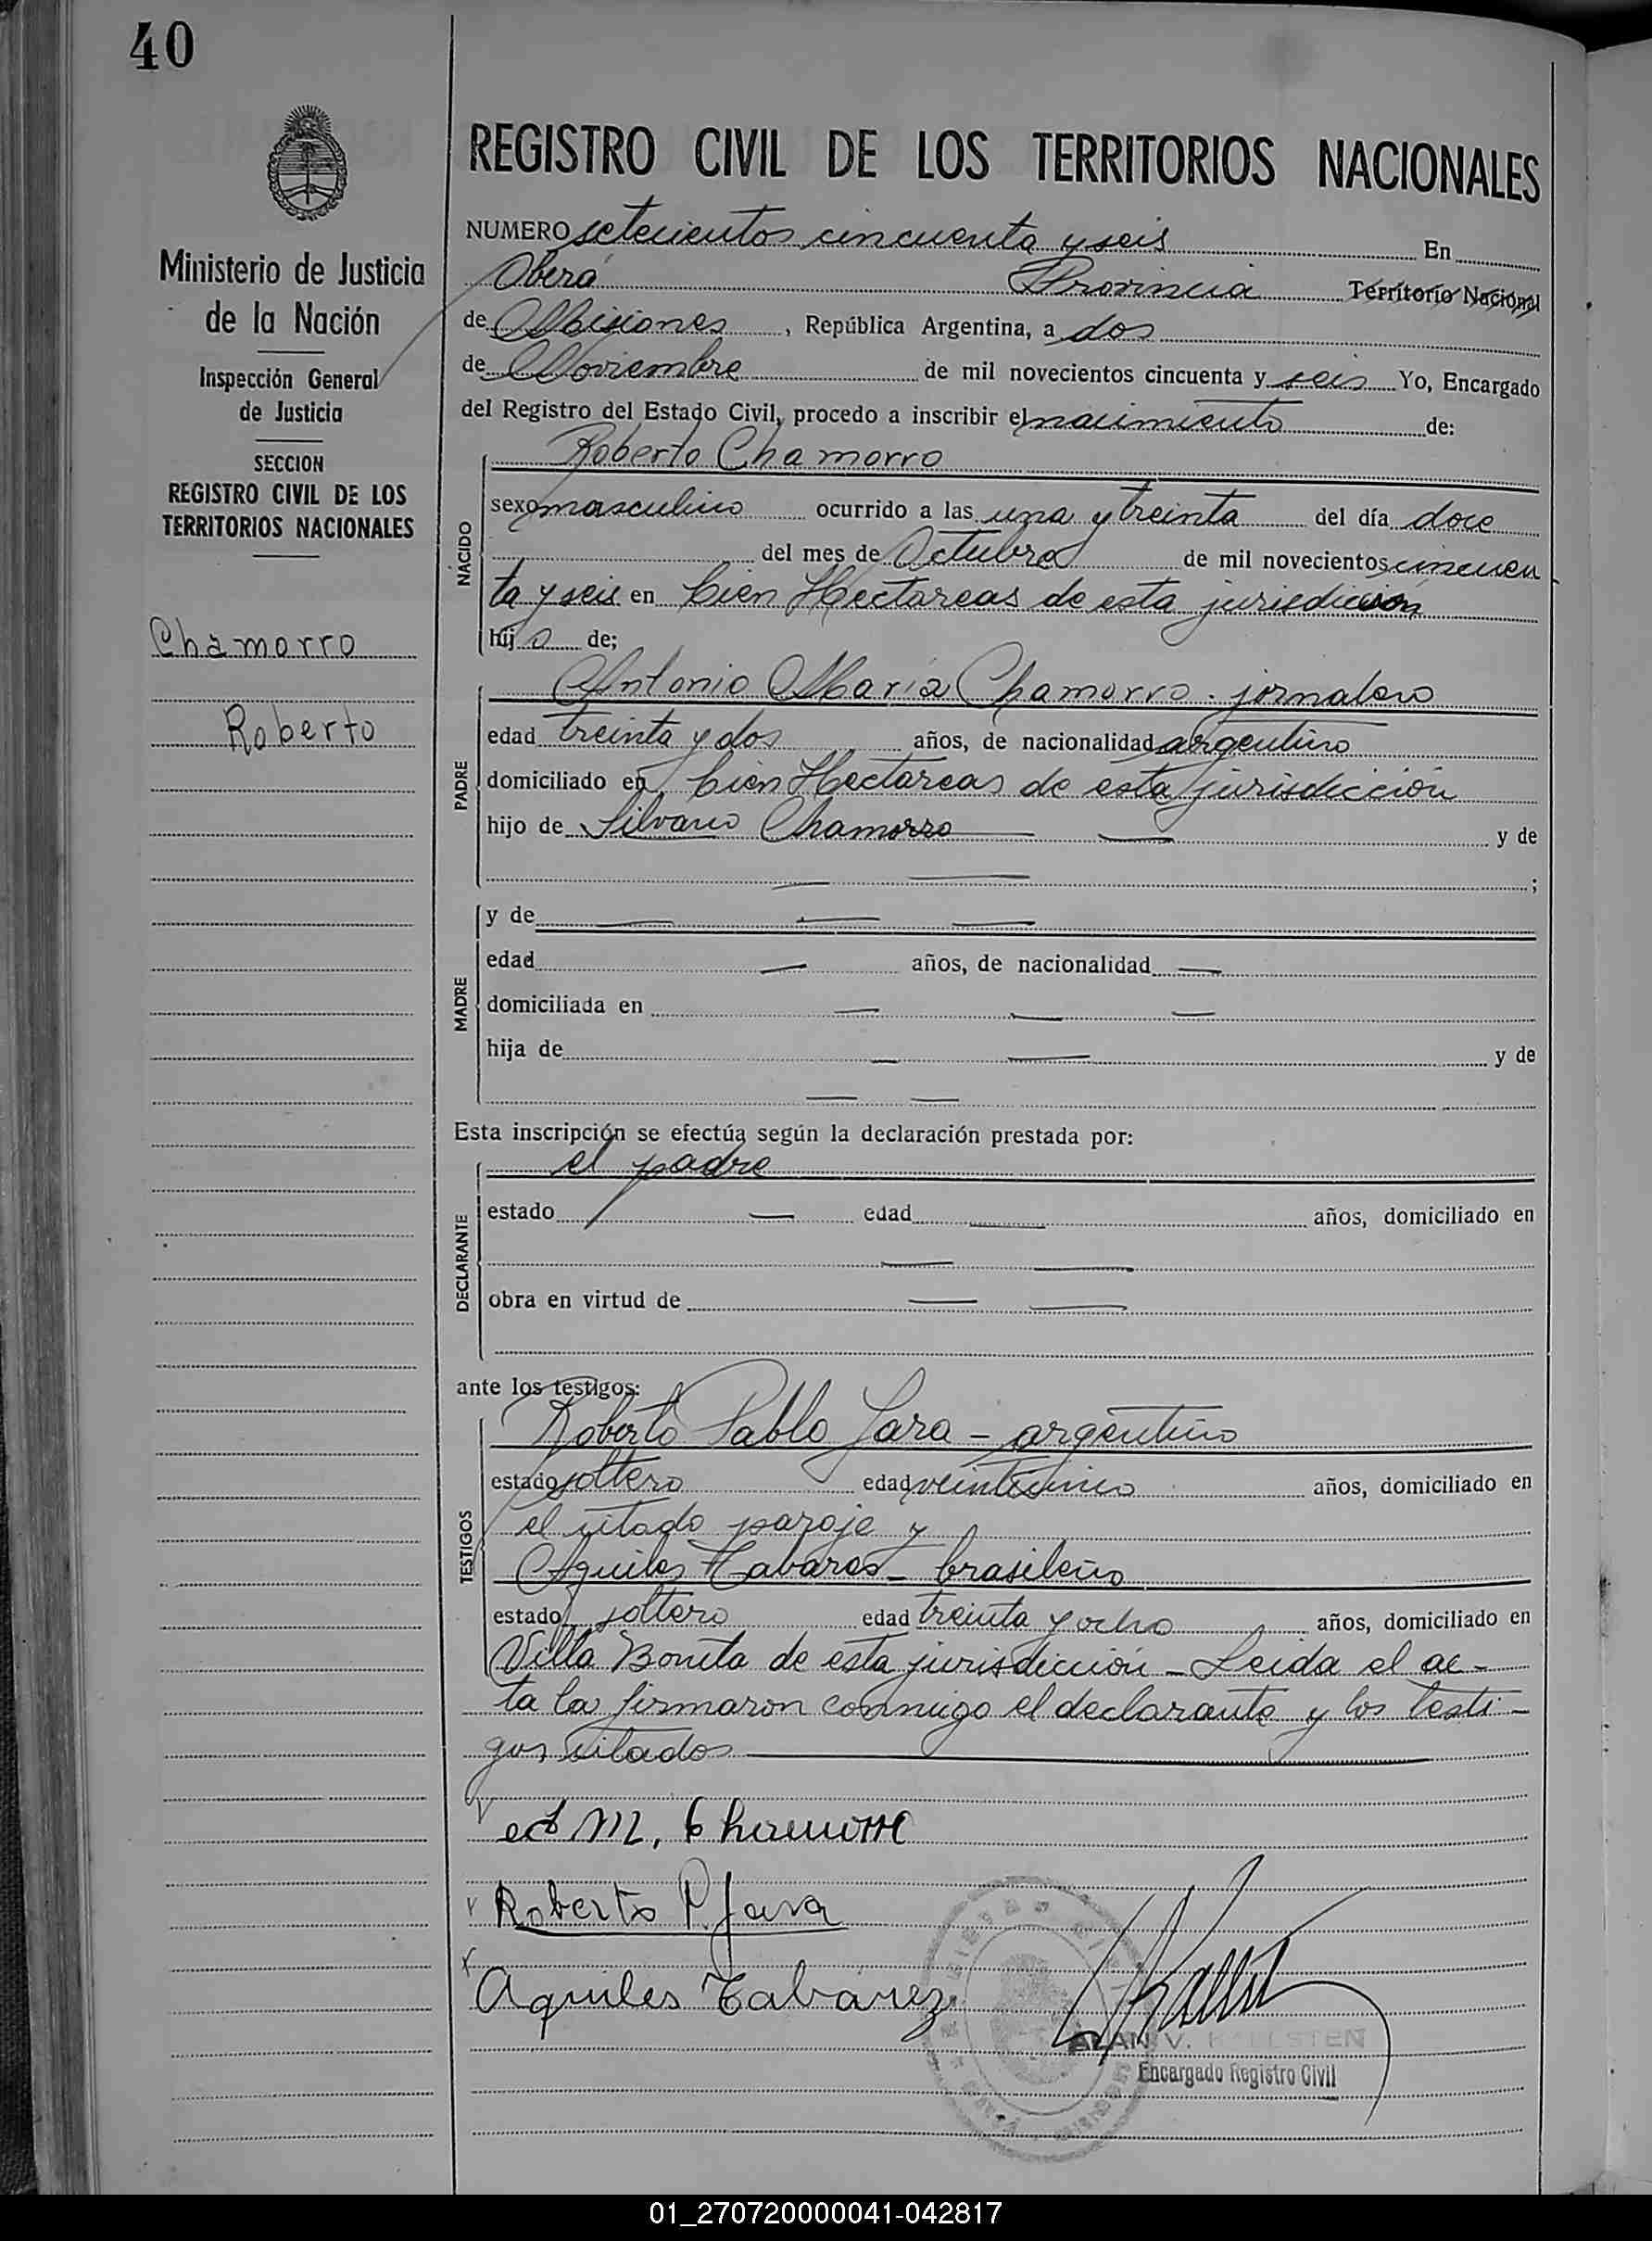 40
Ministerio de Justicia
de la Nación
Inspección General
de Justicia
SECCION
REGISTRO CIVIL DE LOS
TERRITORIOS NACIONALES
Chamorro
Roberto
REGISTRO CIVIL DE LOS TERRITORIOS NACIONALES
NUMERO setecientos cincuenta y seis En
Oberá Provincia Territorio Nacional
de Misiones, República Argentina, a dos
de Noviembre de mil novecientos cincuenta y seis Yo, Encargado
del Registro del Estado Civil, procedo a inscribir el nacimiento de:
NACIDO
Roberto Chamorro
sexo masculino ocurrido a las una y treinta del día doce
del mes de Octubre de mil novecientos cincuen
ta y seis en Cien Hectareas de esta jurisdicción
hijo de;
PADRE
Antonio Maria Chamorro. jornalero
edad treinta y dos años, de nacionalidad argentino
domiciliado en Cien Hectareas de esta jurisdicción
hijo de Silvano Chamorro — — y de
— — ;
MADRE
y de — — —
edad — años, de nacionalidad —
domiciliada en — — —
hija de — — y de
— —
Esta inscripción se efectúa según la declaración prestada por:
DECLARANTE
el padre
estado — edad — años, domiciliado en
— —
obra en virtud de — —
ante los testigos:
TESTIGOS
Roberto Pablo Jara - argentino
estado soltero edad veinticinco años, domiciliado en
el citado paraje y
Aquiles Tabares - brasileño
estado soltero edad treinta y ocho años, domiciliado en
Villa Bonita de esta jurisdicción - Leida el ac-
ta la firmaron conmigo el declarante y los testi-
gos citados
M. Chamorro
Roberto P. Jara
Aquiles Tabarez
ALAN V. KALLSTEN
Encargado Registro Civil
01_270720000041-042817